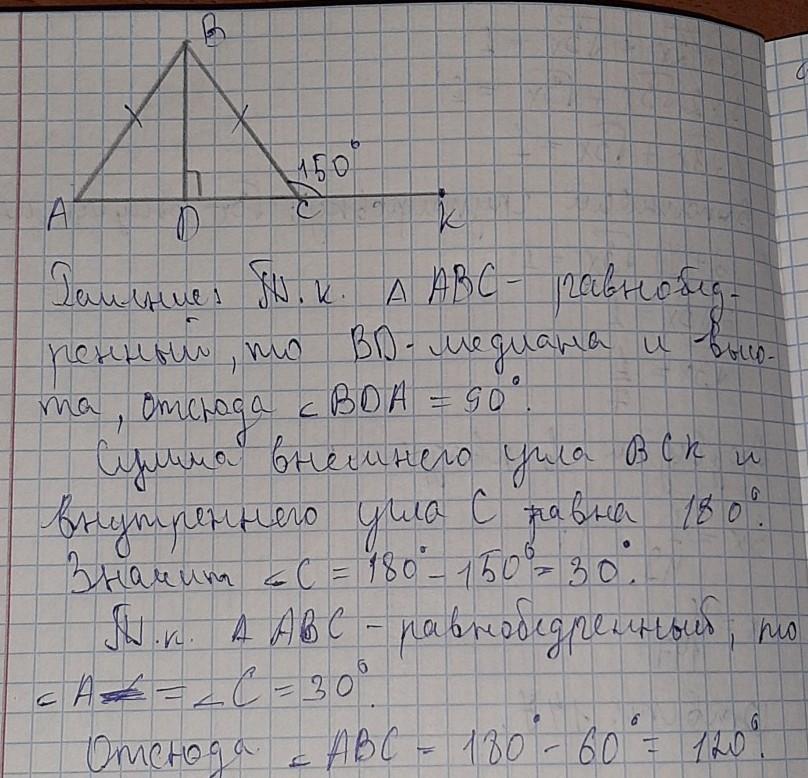 B
150°
A D C K
Решение: Т.к. △ ABC - равнобед-
ренный, то BD - медиана и высо-
та, отсюда ∠BDA = 90°.
Сумма внешнего угла BCK и
внутреннего угла C равна 180°.
Значит ∠C = 180° - 150° = 30°.
Т.к. △ ABC - равнобедренный, то
∠A = ∠C = 30°.
Отсюда ∠ABC = 180° - 60° = 120°.